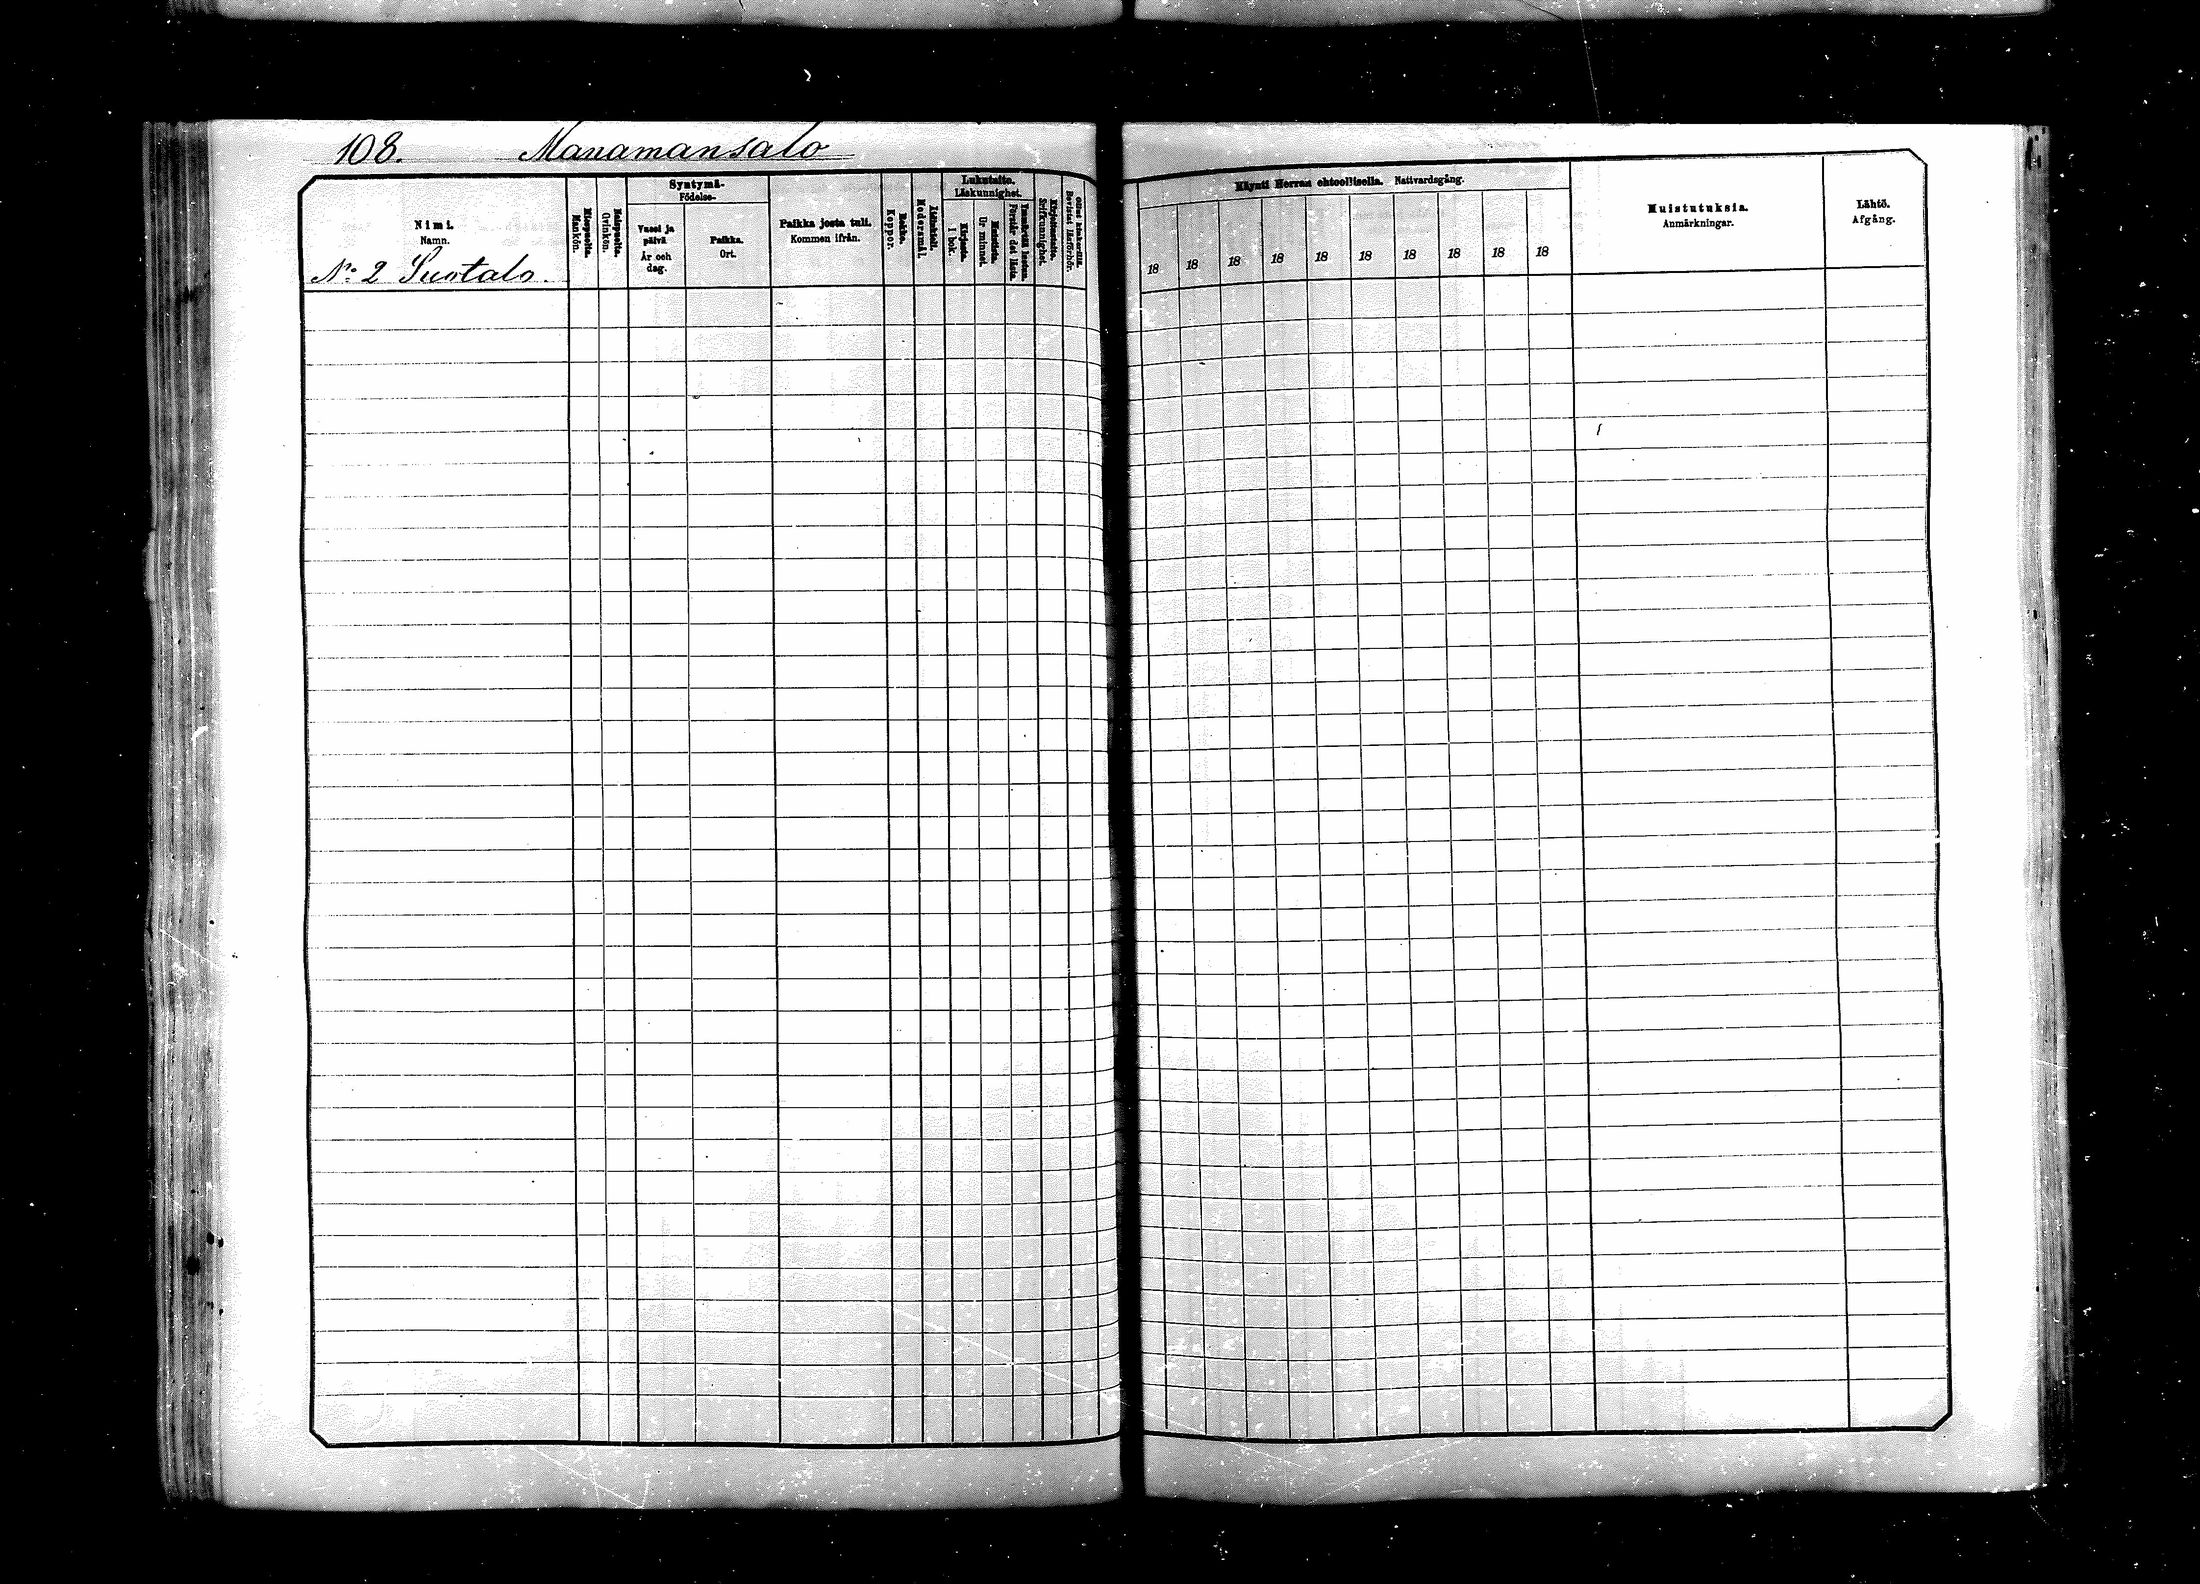 108. Manamansalo
Nimi.
Namn.
No 2 Suotalo.
Miespuolia.
Mankön.
Vaimopuolia.
Qvinkön.
Syntymä-
Födelse-
Vuosi ja
päivä
År och
dag.
Paikka.
Ort.
Paikka josta tuli.
Kommen ifrån.
Rokko.
Koppor.
Modersmål.
Lukutaito.
Läskunnighet.
Kirjasta.
I bok.
Ulkomuistista.
Ur minnet.
Förstår det lästa.
Kirjoitustaito.
Skrifkunnighet.
Bevistat läsförhör.
Käynti Herran ehtoollisella. Nattvardsgång.
18 18 18 18 18 18 18 18 18 18
Muistutuksia.
Anmärkningar.
Lähtö.
Afgång.